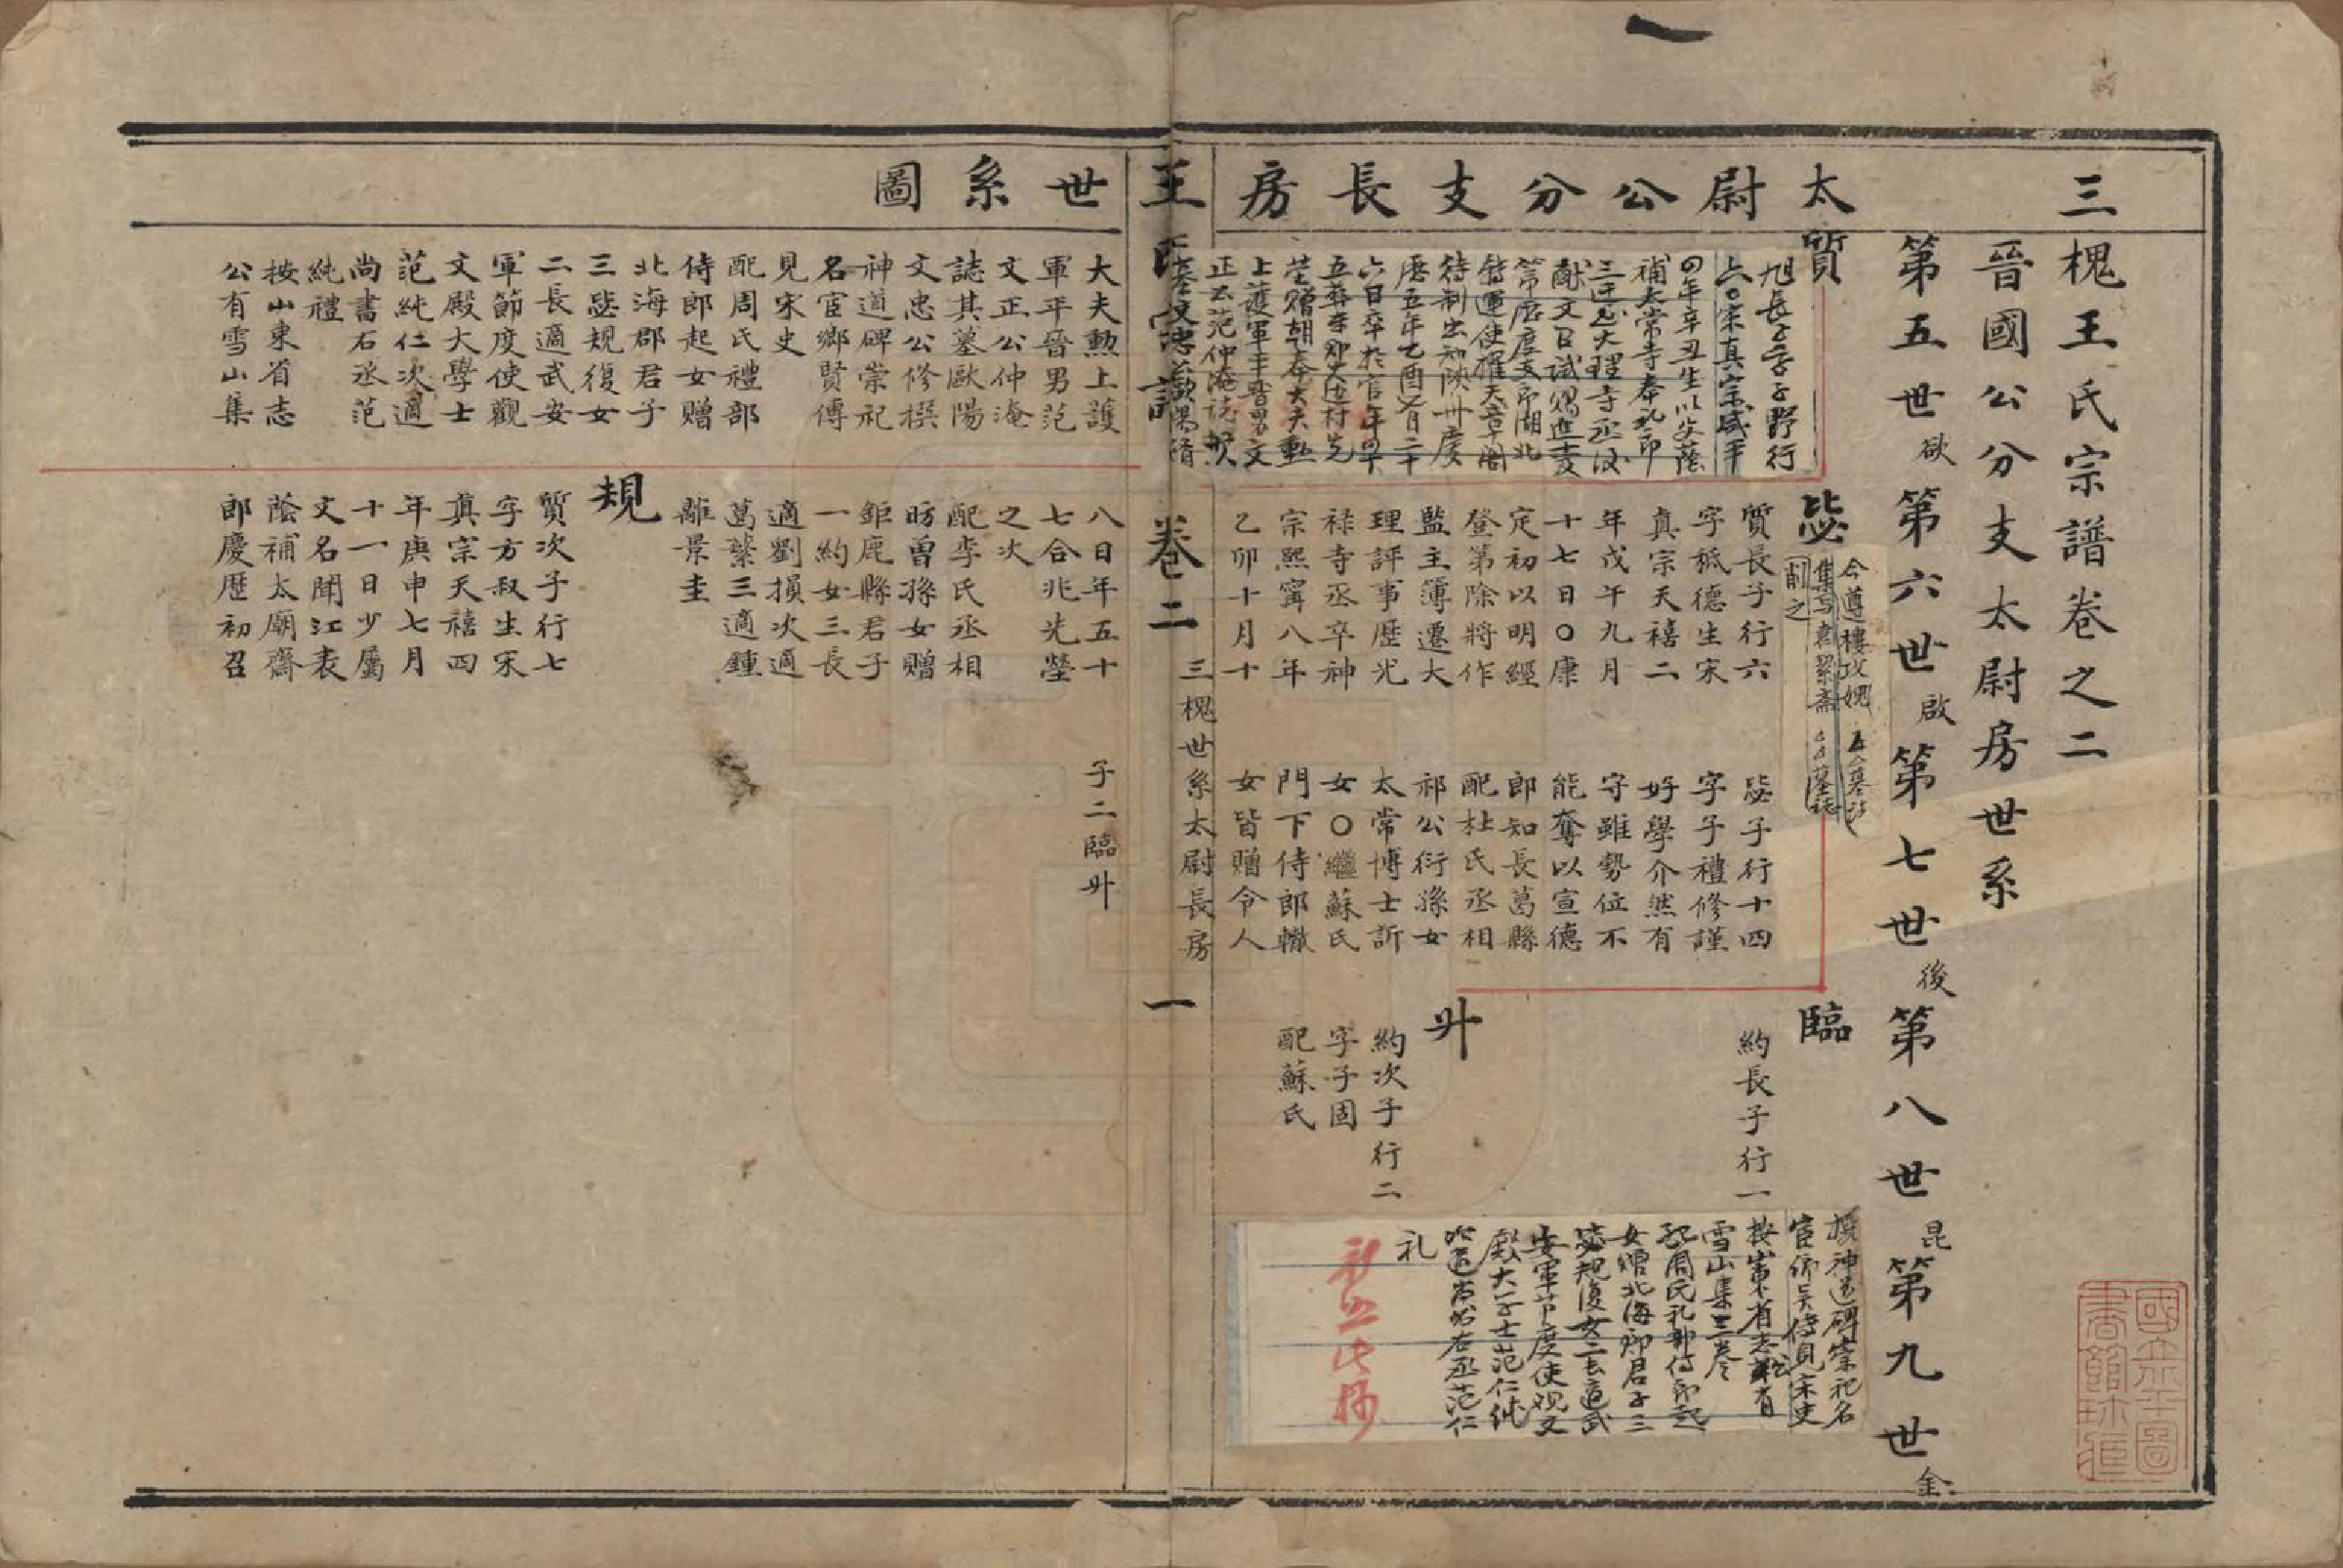 三槐王氏宗譜卷之二
晉國公分支太尉房世系
第五世欲第六世啟第七世後第八世昆第九世金
太尉公分支長房
質
旭長子字子野行
六〇宋真宗咸平
四年辛丑生以父蔭
補太常寺奉礼郎
獻文召試賜進士
待制出知陝州慶
歷五年乙酉
六日卒於官年四十
塋贈朝奉大夫勲
上護軍平晉男文
正公范仲淹誌
毖
質長子行六
字祗德生宋
真宗天禧二
年戊午九月
十七日〇康
定初以明經
登第除將作
監主簿遷大
理評事歷光
祿寺丞卒神
宗熙寧八年
乙卯十月十
今遵樓攻媿
削之
毖子行十四
字子禮修謹
好學介然有
守雖勢位不
能奪以宣德
郎知長葛縣
配杜氏丞相
祁公衍孫女
太常博士訢
女〇繼蘇氏
門下侍郎轍
女皆贈令人
臨
約長子行一
升
約次子行二
字子固
配蘇氏
撰神道碑崇祀名
宦鄉賢傳見宋史
按山東省志公有
雪山集三卷
配周氏礼部侍郎起
女贈北海郡君子三
毖規復女二長適武
安軍节度使观文
殿大学士范仁纯
次适尚書右丞范仁
礼
王氏宗譜
卷二
三槐世系太尉長房
一
世系圖
大夫勲上護
軍平晉男范
文正公仲淹
誌其墓歐陽
文忠公修撰
神道碑崇祀
名宦鄉賢傳
見宋史
配周氏禮部
侍郎起女贈
北海郡君子
三毖規復女
二長適武安
軍節度使觀
文殿大學士
范純仁次適
尚書右丞范
純禮
按山東省志
公有雪山集
八日年五十
七合兆先塋
之次
配李氏丞相
昉曾孫女贈
鉅鹿縣君子
一約女三長
適劉損次適
葛蘩三適鍾
離景圭
子二臨升
規
質次子行七
字方叔生宋
真宗天禧四
年庚申七月
十一日少屬
文名聞江表
蔭補太廟齋
郎慶歷初召
國立北平圖書館珍藏